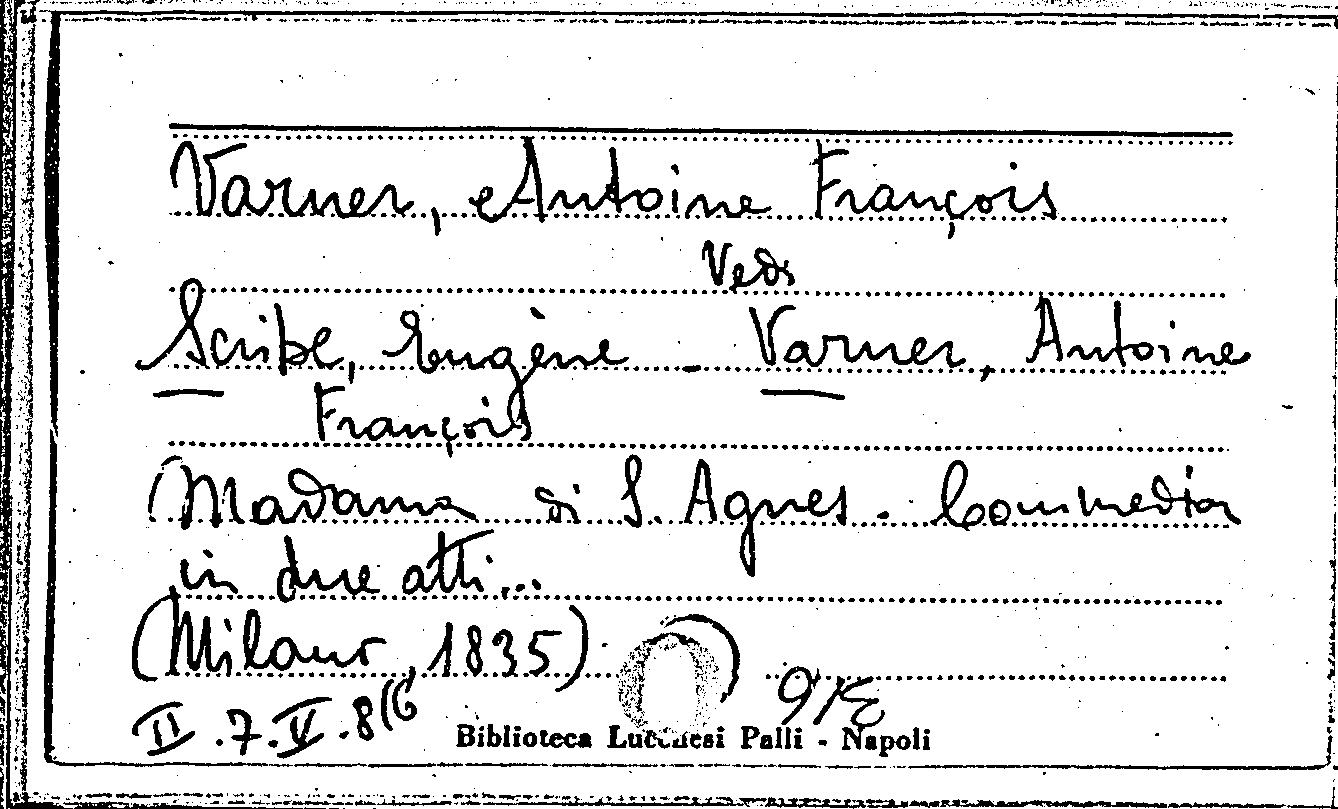 Varner, Antoine François
Vedi
Scribe, Eugène - Varner, Antoine
François
Madama di S. Agnes. Commedia
in due atti...
(Milano, 1835)
II.7.V.8(6
Biblioteca Lucchesi Palli - Napoli